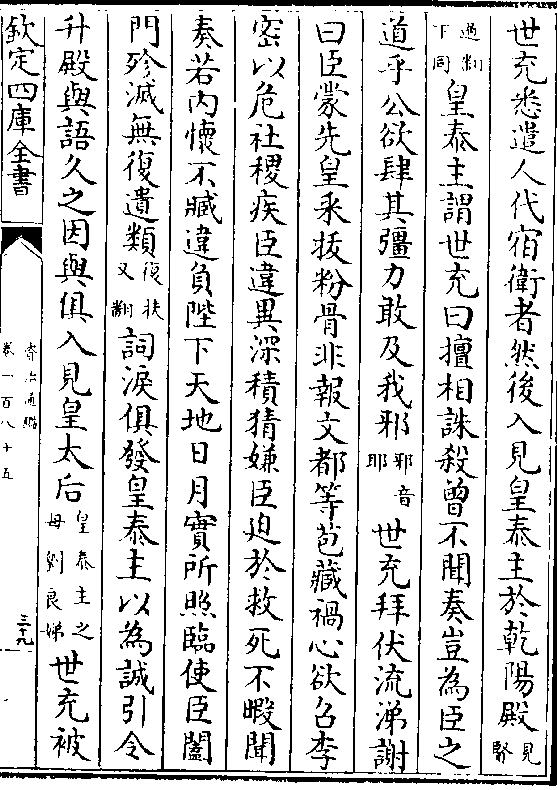 世充悉遣人代宿衛者然後入見皇泰主於乾陽殿見賢
遍翻下同皇泰主謂世充曰擅相誅殺曾不聞奏豈為臣之
道乎公欲肆其彊力敢及我邪邪音耶世充拜伏流涕謝
曰臣蒙先皇采拔粉骨非報文都等苞藏禍心欲召李
密以危社稷疾臣違異深積猜嫌臣迫於救死不暇聞
奏若内懷不臧違負陛下天地日月實所照臨使臣闔
門殄滅無復遺類復扶又翻詞淚俱發皇泰主以為誠引令
升殿與語久之因與俱入見皇太后皇泰主之母劉良娣世充被
欽定四庫全書
資治通鑑
卷一百八十五
三十九